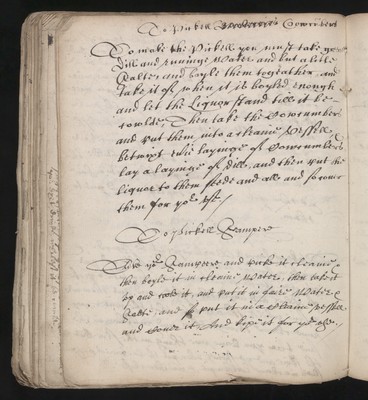 To Pickell Cowcumbers
To make the Pickell you must take
Dill and runinge Water and but a litle
Salte, and boyle them together, and
take it of when it is boyled enough
and let the Liquor stand till it be
could, Then take the Cowcumbers
and put them into a cleane Vessell,
betwixt evrie layinge of Cowcumbers
lay a layinge of Dill, and then put the
liquor to them seede and all and so cover
them for yor use
To Pickell Sampire
Take yor Sampere and picke it cleane
then boyle it in cleane Water, then take it
up and coole it, and put it in faire Water &
Salte, and put it in a cleane Vessell
and cover it, And kepe it for yor use